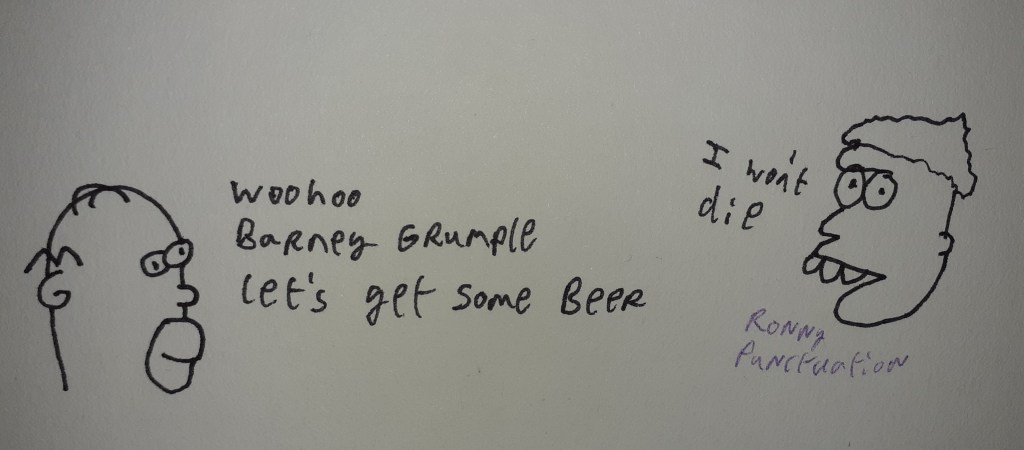 Woohoo
Barney Grumple
Let's get some Beer
I won't
die
Ronny
Punctuation